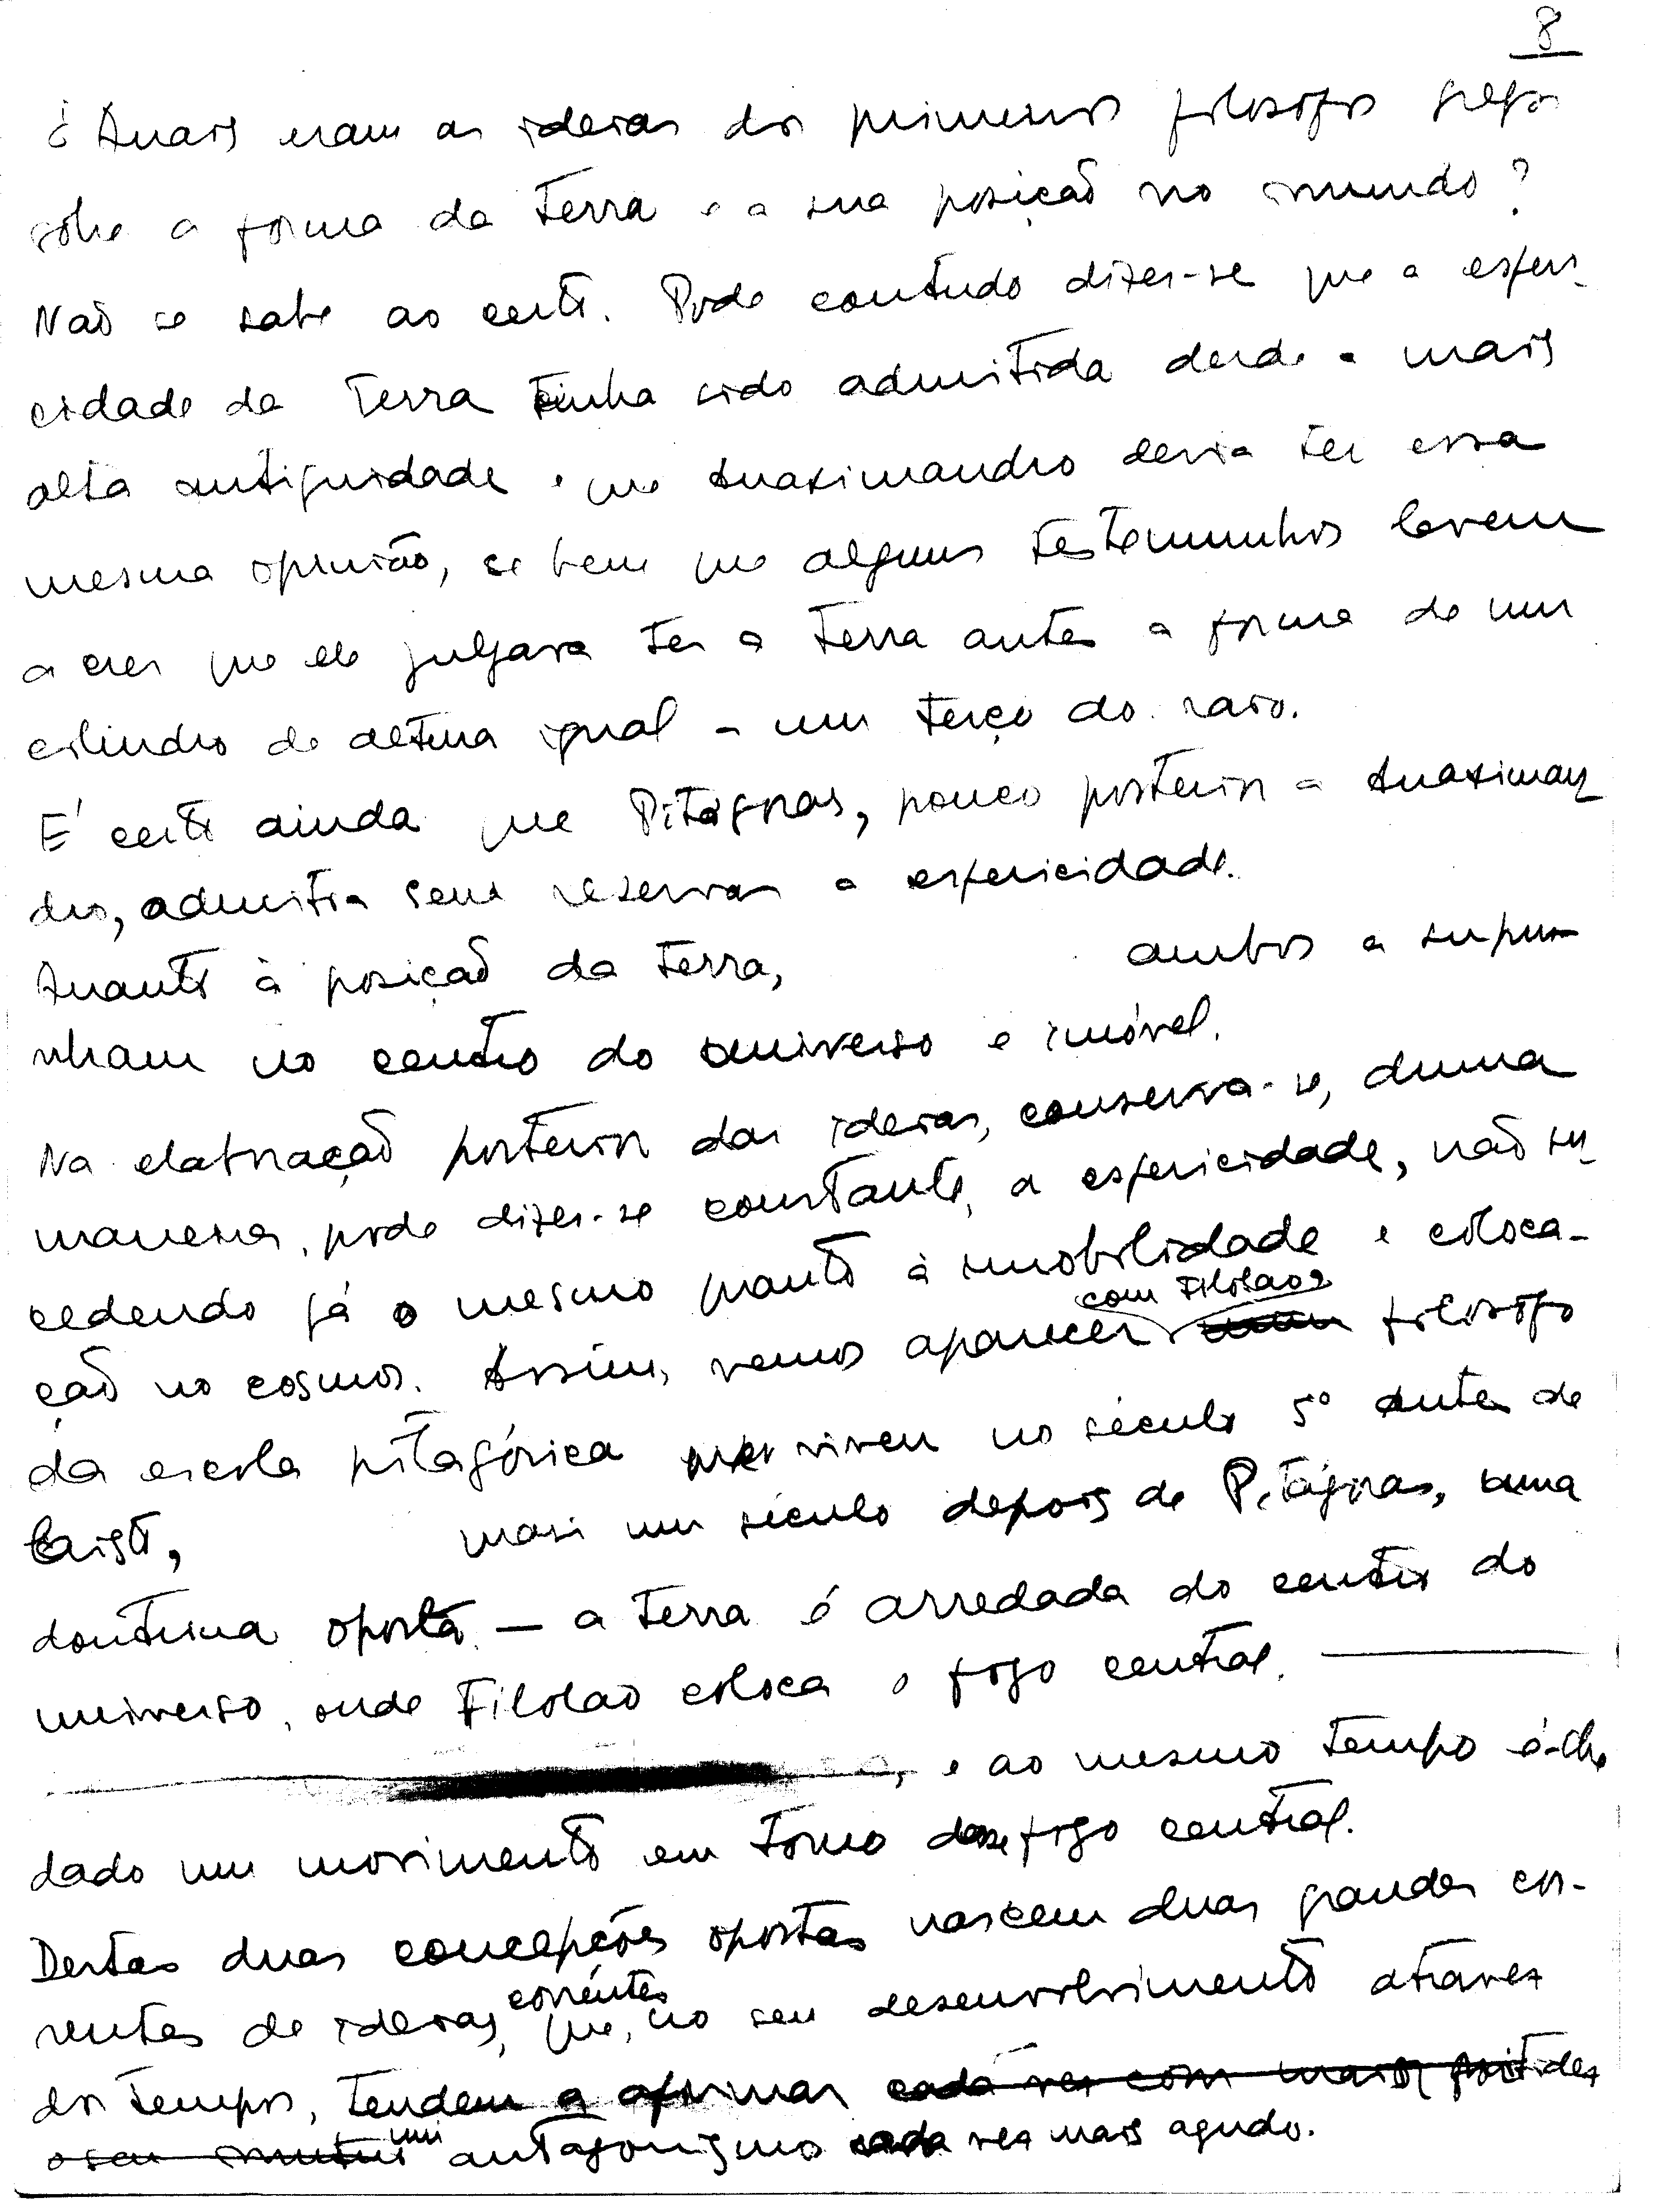 8
¿ Quais eram as ideias dos primeiros filosofos gregos
sôbre a forma da Terra e a sua posição no mundo?
Não se sabe ao certo. Pode contudo dizer-se que a esferi-
cidade da Terra tinha sido admitida desde a mais
alta antiguidade e que Anaximandro devia ter essa
mesma opinião, se bem que alguns testemunhos levem
a crer que ele julgava ter a Terra antes a forma de um
cilindro de altura igual a um terço do raio.
É certo ainda que Pitágoras, pouco posterior a Anaximan-
dro, admitia sem reservas a esfericidade.
Quanto à posição da Terra, ambos a supu-
nham no centro do universo e imóvel.
Na elaboração posterior das ideias, conserva-se, duma
maneira, pode dizer-se constante, a esfericidade, não su-
cedendo já o mesmo quanto à imobilidade e coloca-
ção no cosmos. Assim, vemos aparecer com Filolao, filosofo
da escola pitagórica que viveu no século 5º antes de
Cristo, quasi um século depois de Pitágoras, uma
doutrina oposta — a Terra é arredada do centro do
universo, onde Filolao coloca o fogo central.
, e ao mesmo tempo é-lhe
dado um movimento em torno desse fogo central.
Destas duas concepções opostas nascem duas grandes cor-
rentes de ideias, correntes que, no seu desenvolvimento atravez
dos tempos, tendem a afirmar cada vez com maior nitidez
o seu mutuo um antagonismo cada vez mais agudo.